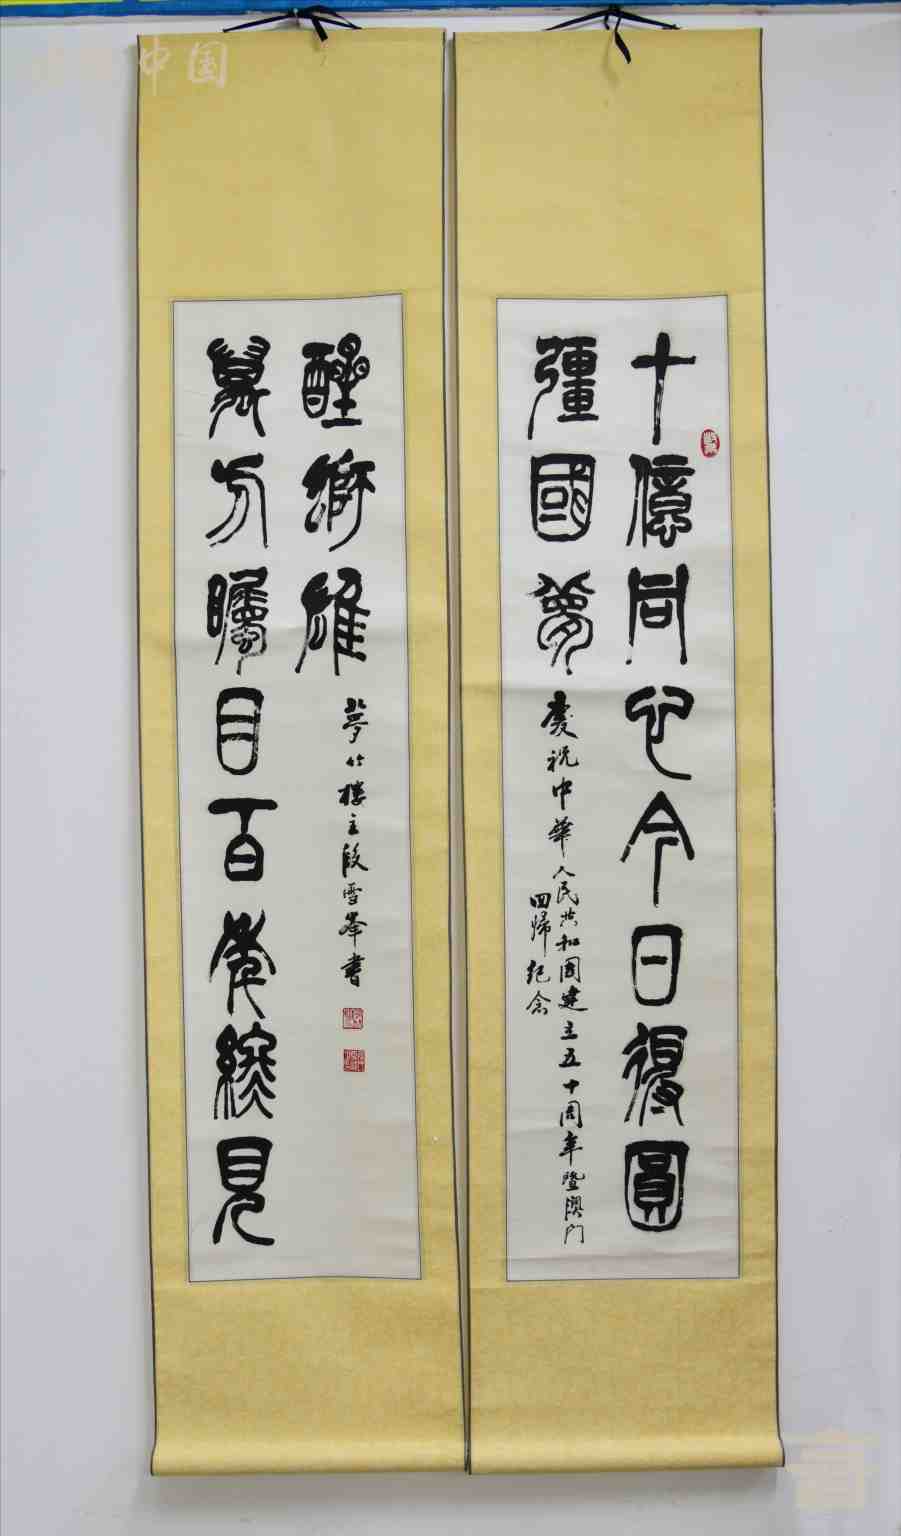 中国
十億同心今日得圓
彊國夢
慶祝中華人民共和國建立五十周年暨澳門
回歸紀念
萬方矚目百年見
醒獅雄
夢竹樓主段雪峯書